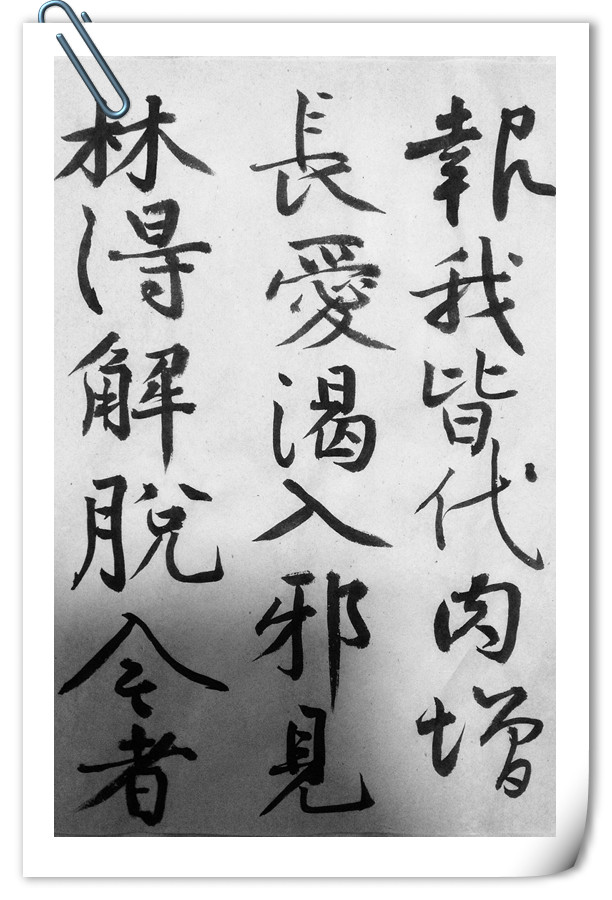 報我皆代肉增
長愛渴入邪見
林得解脫今者